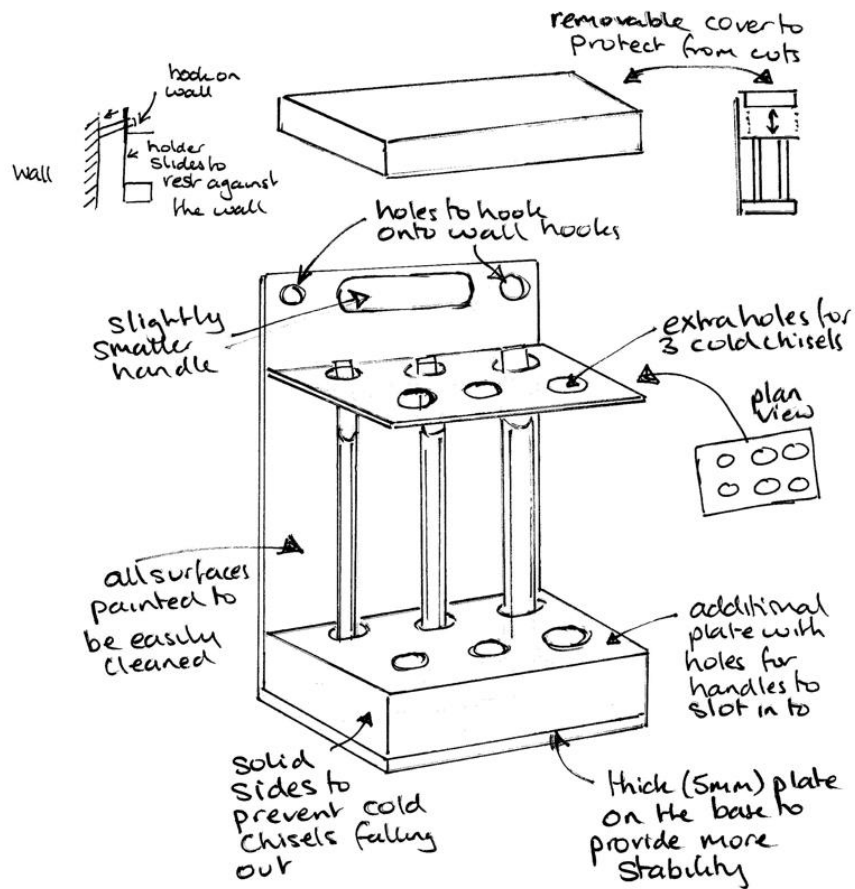 removable cover to
protect from cuts
hook on
wall
wall
holder
slides to
rest against
the wall
holes to hook
onto wall hooks
slightly
smaller
handle
extra holes for
3 cold chisels
plan
view
all surfaces
painted to
be easily
cleaned
additional
plate with
holes for
handles to
slot in to
solid
sides to
prevent cold
chisels falling
out
thick (5mm) plate
on the base to
provide more
stability